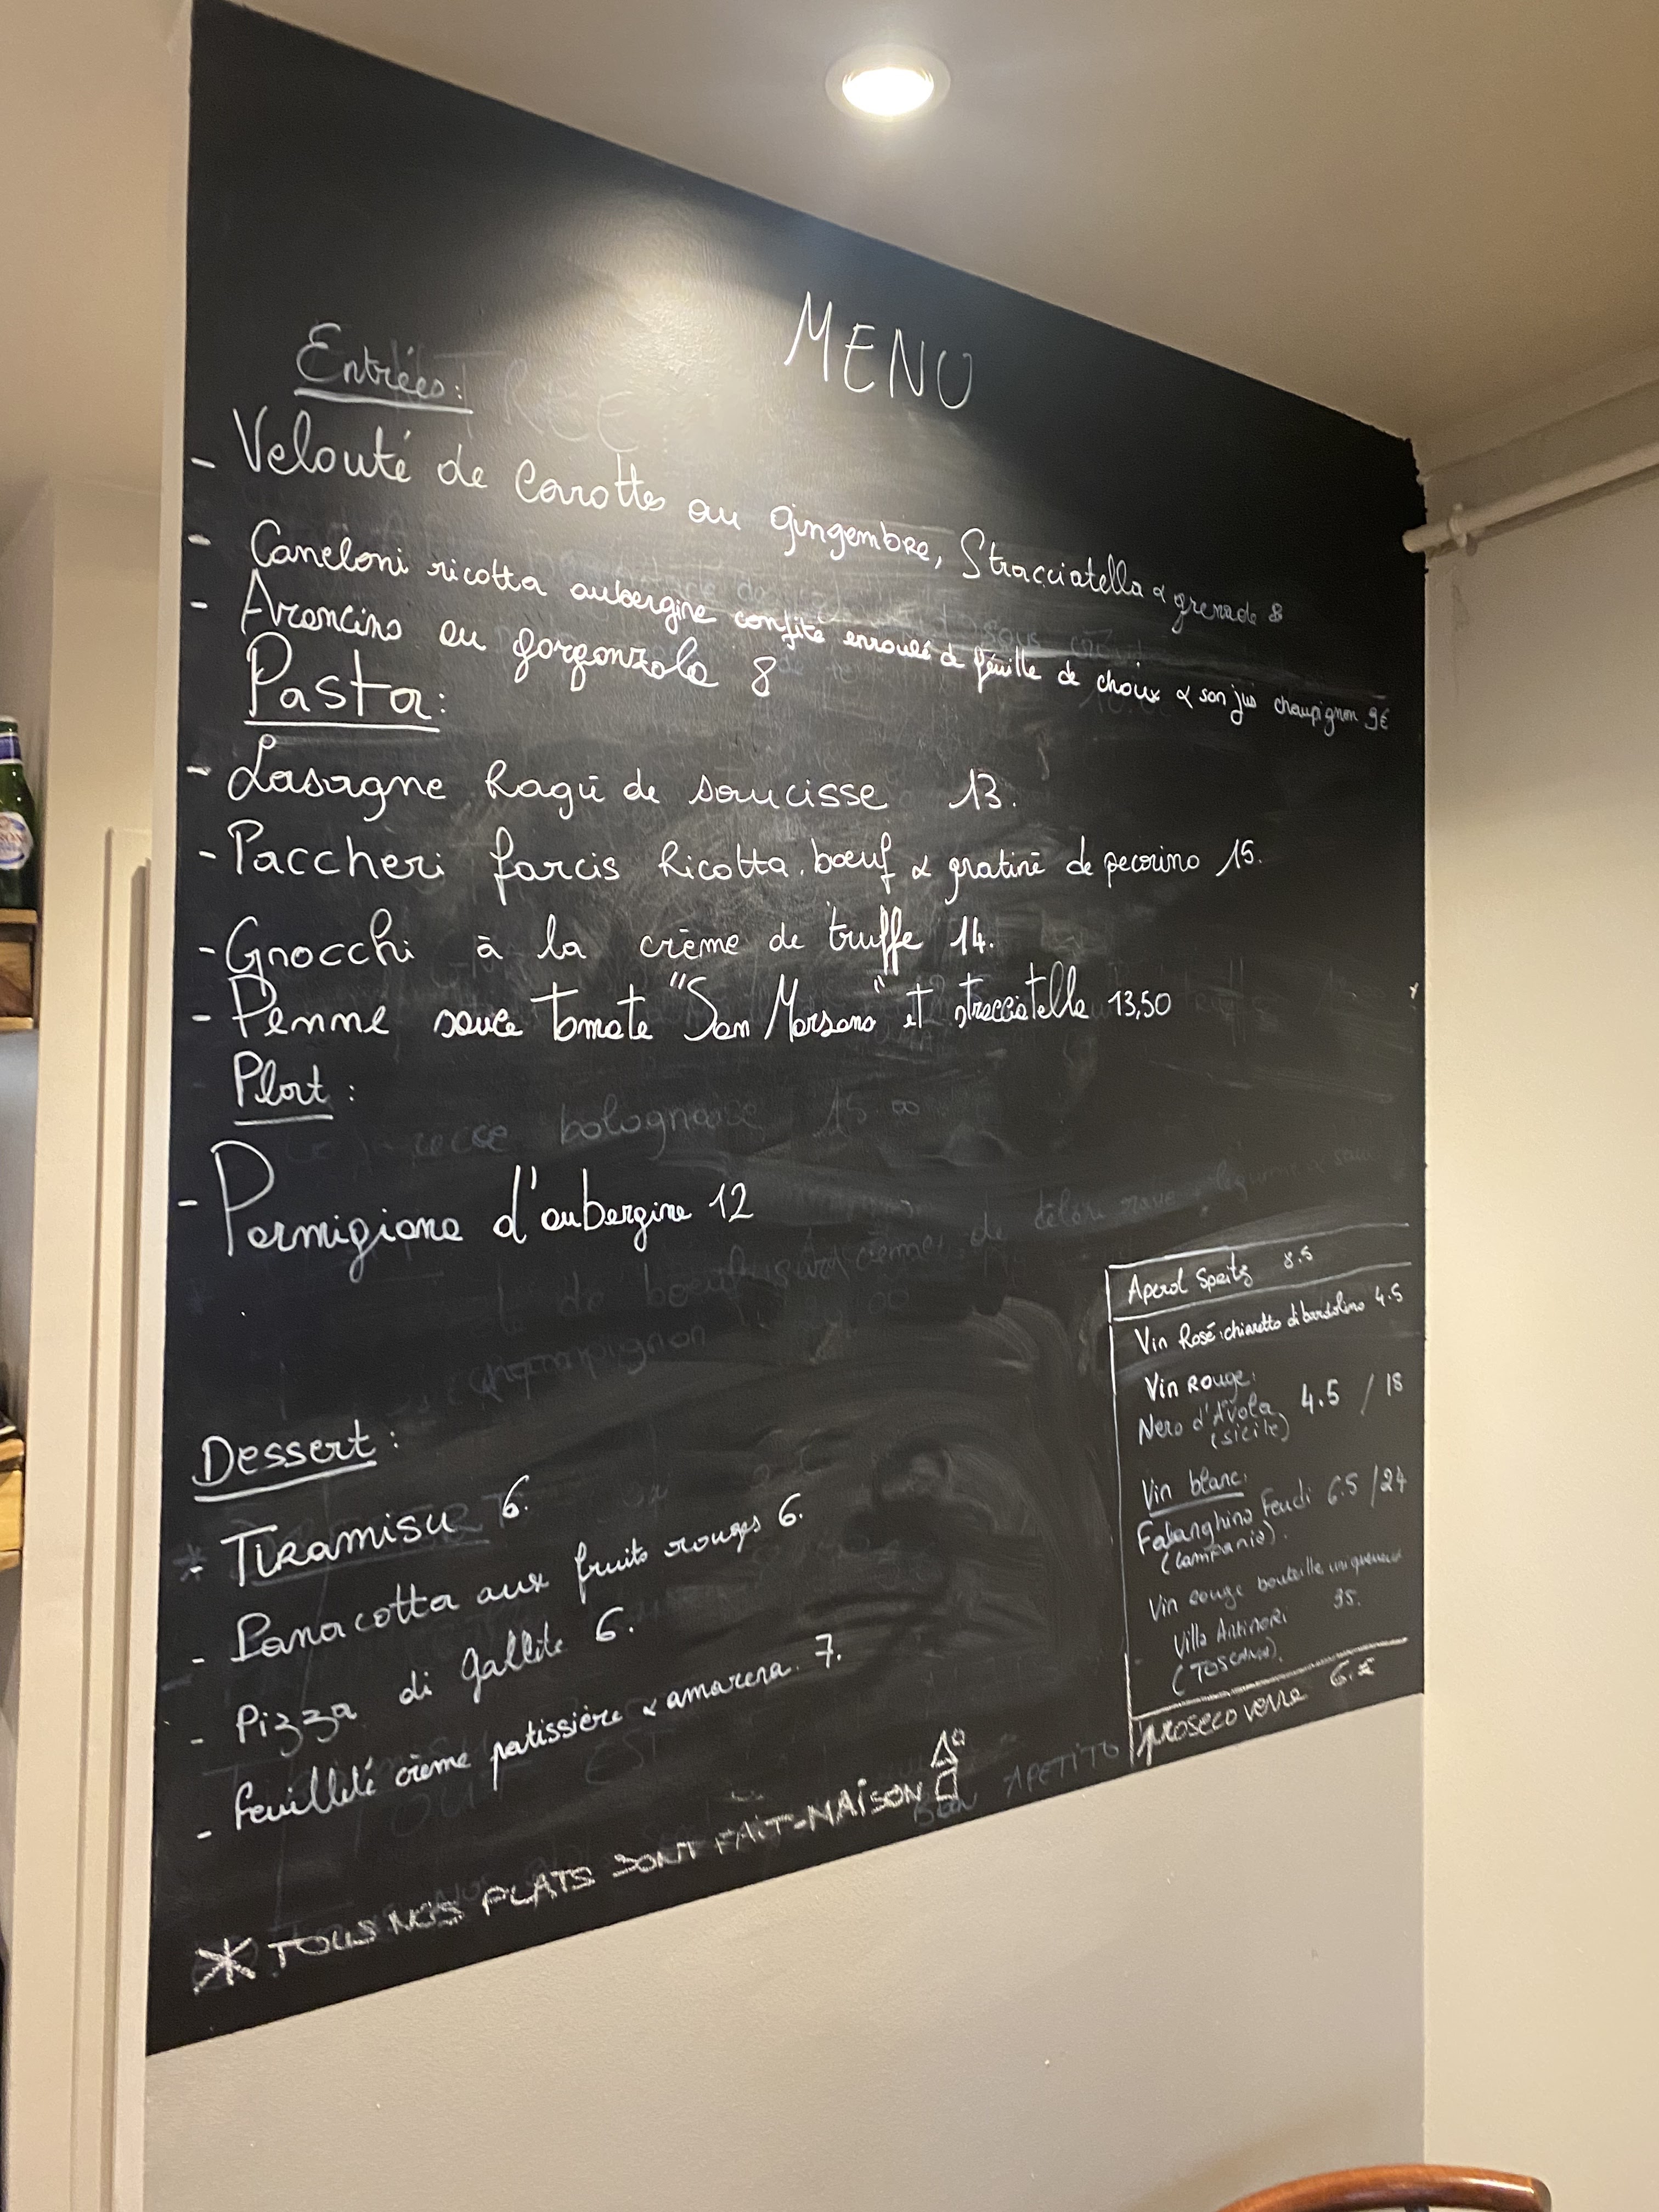 MENU
Entrées:
- Velouté de Carottes au gingembre, Stracciatella & grenade 8
- Caneloni ricotta aubergine confite enroulé de feuille de choux & son jus champignon 9€
- Arancino au gorgonzola 8
Pasta:
- Lasagne Ragū de saucisse 13.
- Paccheri farcis Ricotta. bœuf & gratiné de pecorino 15.
- Gnocchi à la crème de truffe 14.
- Penne sauce tomate "San Marzano" et stracciatella 13,50
Plat:
- Parmigiana d'aubergine 12
Dessert:
- Tiramisu 6.
- Panacotta aux fruits rouges 6.
- Pizza di
6.
- feuilleté crème patissière & amarena. 7.
* TOUS NOS PLATS SONT FAIT-MAISON
BON APETITO
Aperol Spritz 8.5
Vin Rosé: chiaretto di bardolino 4.5
Vin Rouge:
Nero d'Avola 4.5 / 18
(sicile)
Vin blanc:
Falanghino Feudi 6.5 / 24
(Campanie).
Vin rouge bouteille uniquement
Villa Antinori 35.
(TOSCANA).
proseco verre 6.€